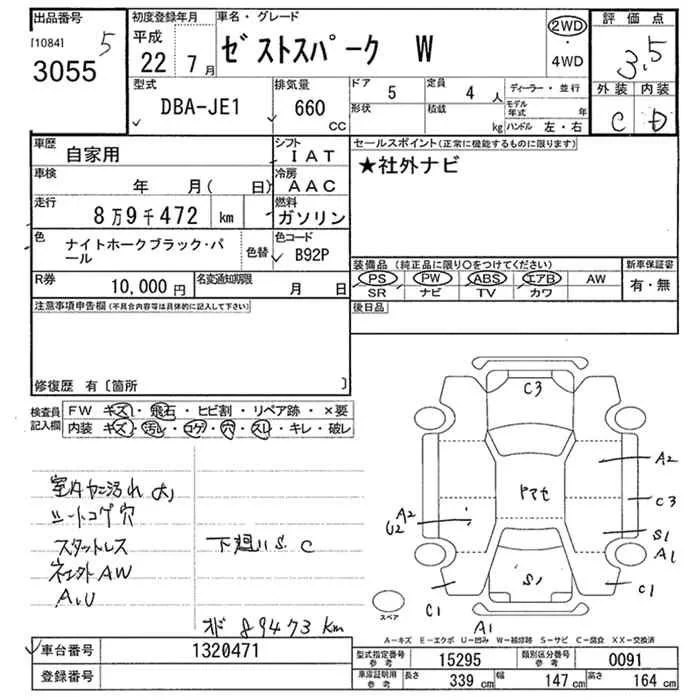 出品番号
[1084] 5
3055
初度登録年月
平成
22年 7月
車名・グレード
ゼストスパーク W
2WD
・
4WD
評価点
3.5
外装 内装
C D
型式
DBA-JE1
排気量
660
CC
ドア
5
定員
4 人
形状
積載
kg
ディーラー・並行
モデル年式 年
ハンドル 左・右
車歴
自家用
シフト
IAT
車検
年 月( 日)
冷房
AAC
走行
8万9千472 km
燃料
ガソリン
色
ナイトホークブラック・パール
色替
色コード
B92P
R券
10,000 円
名変通知期限
月 日
セールスポイント(正常に機能するものに限ります)
★社外ナビ
装備品(純正品に限り○をつけてください)
PS PW ABS エアB AW
SR ナビ TV カワ
新車保証書
有・無
後日品
注意事項申告欄(不具合内容等は具体的に記入して下さい)
修復歴 有〔箇所 〕
検査員
記入欄
FW キズ・飛石・ヒビ割・リペア跡・×要
内装 キズ・汚レ・コゲ・穴・スレ・キレ・破レ
室内ヤニ汚れ 大
シートコゲ穴
スタットレス
下廻りS.C
社外AW
A,U
ｵﾄﾞ 89473 km
C3
A2
C3
S1
A1
C1
A2
U2
ヤマセ
S1
C1
A1
スペア
A－キズ E－エクボ U－凹み W－補修跡 S－サビ C－腐食 XX－交換済
車台番号
1320471
登録番号
型式指定番号
参考
15295
類別区分番号
参考
0091
車庫証明用
参考
長さ
339 cm
幅
147 cm
高さ
164 cm